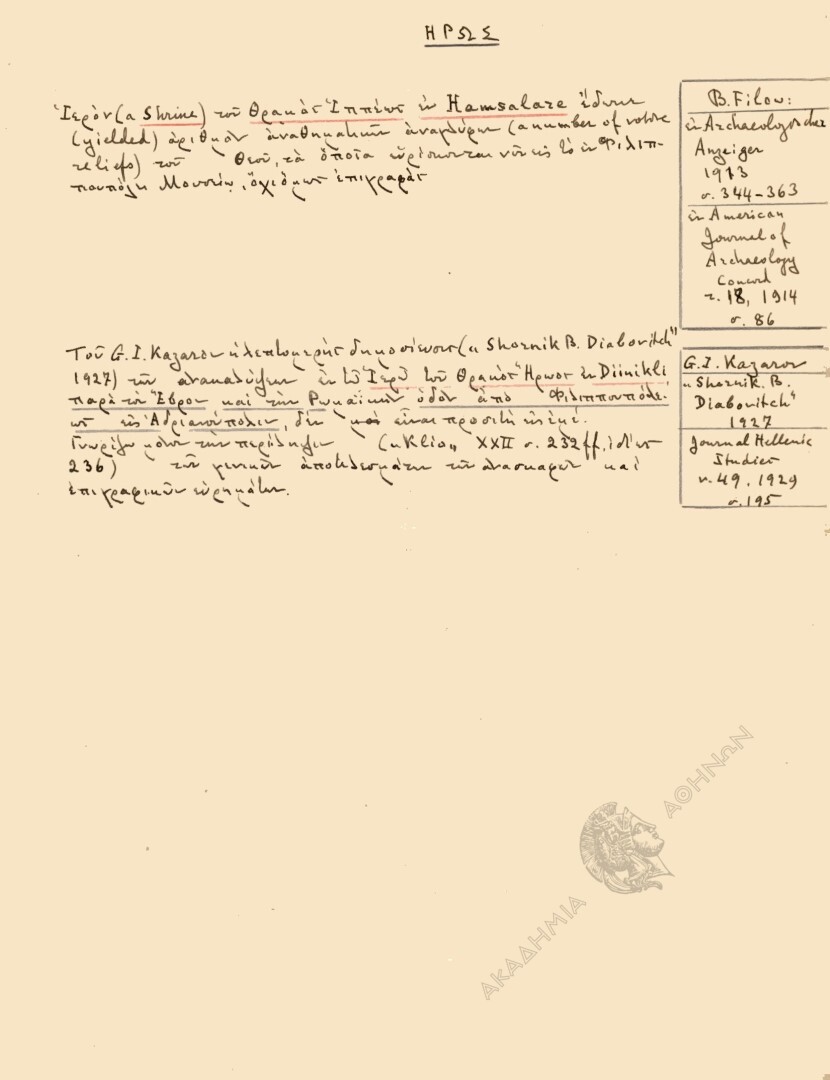 ΗΡΩΣ
Ἱερὸν (a Shrine) τοῦ Θρακὸς Ἱππέως ἐν Hamsalare ἔδωκε
(yielded) ἀριθμὸν ἀναθηματικῶν ἀναγλύφων (a number of votive
reliefs) τοῦ Θεοῦ, τὰ ὁποῖα εὑρίσκονται νῦν εἰς τὸ ἐν Φιλιπ-
πουπόλει Μουσεῖον, ὄχι ὅμως ἐπιγραφὰς
B. Filow:
ἐν Archaeologischer
Anzeiger
1913
σ. 344-363
ἐν American
Journal of
Archaeology
Concord
τ. 18, 1914
σ. 86
Τοῦ G. I. Kazarow ἡ λεπτομερὴς δημοσίευσις („Shornik B. Diabovitch"
1927) τῶν ἀνακαλύψεων ἐν τῷ Ἱερῷ τοῦ Θρακὸς Ἥρωος ἐν Diinikli
παρὰ τὸν Ἕβρον καὶ τὴν Ρωμαϊκὴν ὁδὸν ἀπὸ Φιλιππουπόλε-
ως εἰς Ἀδριανούπολιν, δὲν εἶναι προσιτὴ εἰς ἐμέ.
Γνωρίζω μόνον τὴν περίληψιν („Klio„ XXII σ. 232ff, ἰδίως
236) τῶν γενικῶν ἀποτελεσμάτων τῶν ἀνασκαφῶν καὶ
ἐπιγραφικῶν εὑρημάτων.
G. I. Kazarow
„Shornik. B.
Diabovitch"
1927
Journal Hellenic
Studies
v. 49, 1929
σ. 195
ΑΚΑΔΗΜΙΑ ΑΘΗΝΩΝ